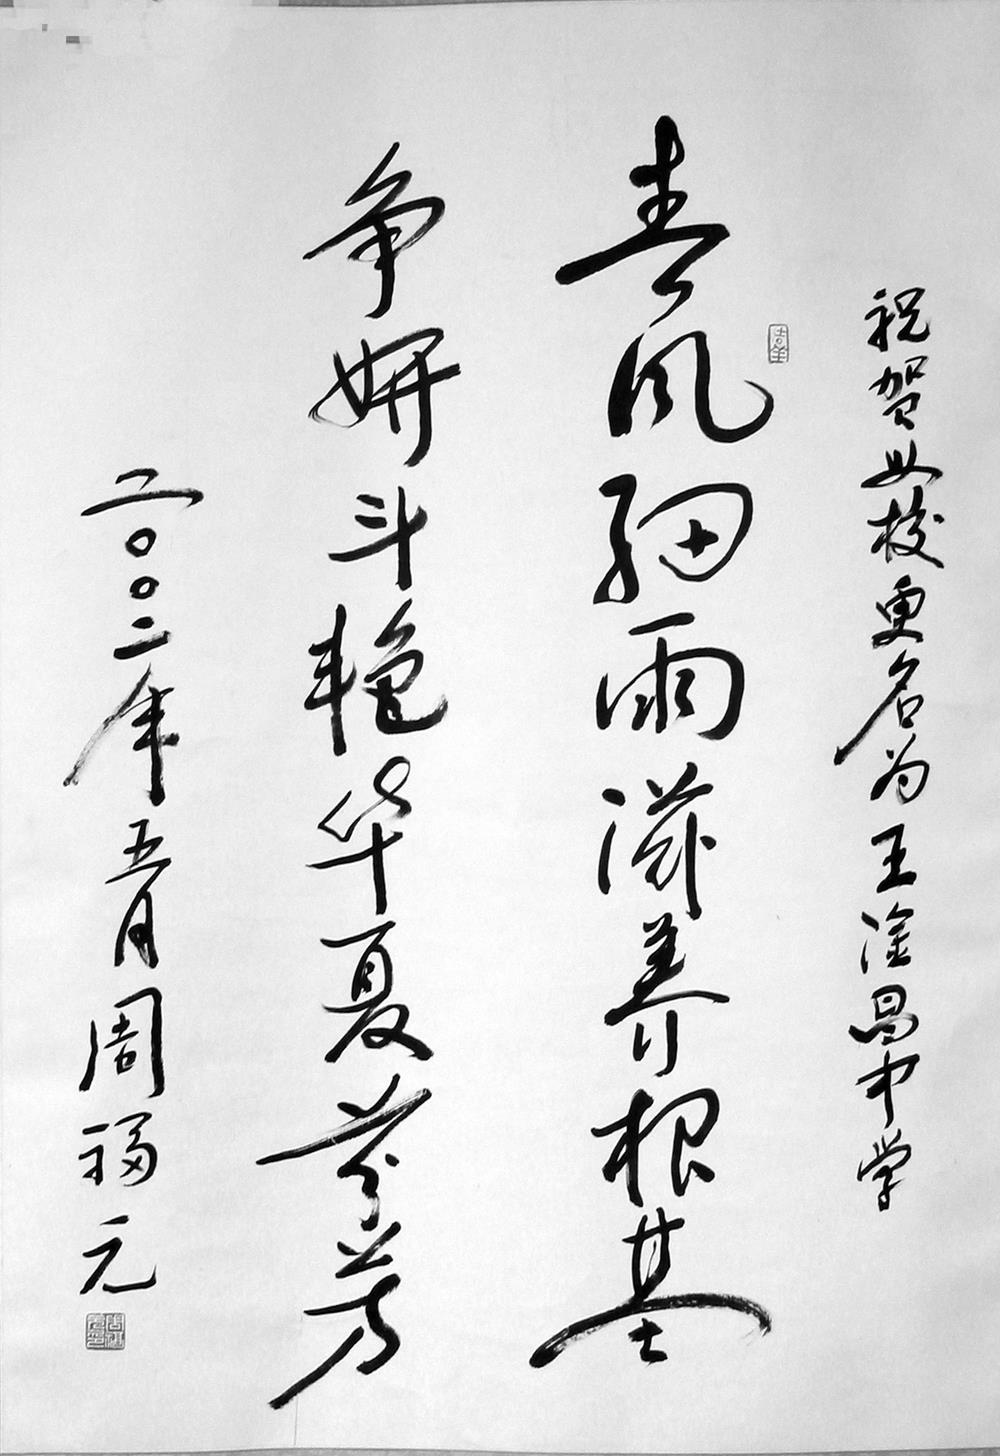 祝贺母校更名为王淦昌中学
春风细雨滋养根基
争妍斗艳华夏芬芳
二〇〇二年五月周福元